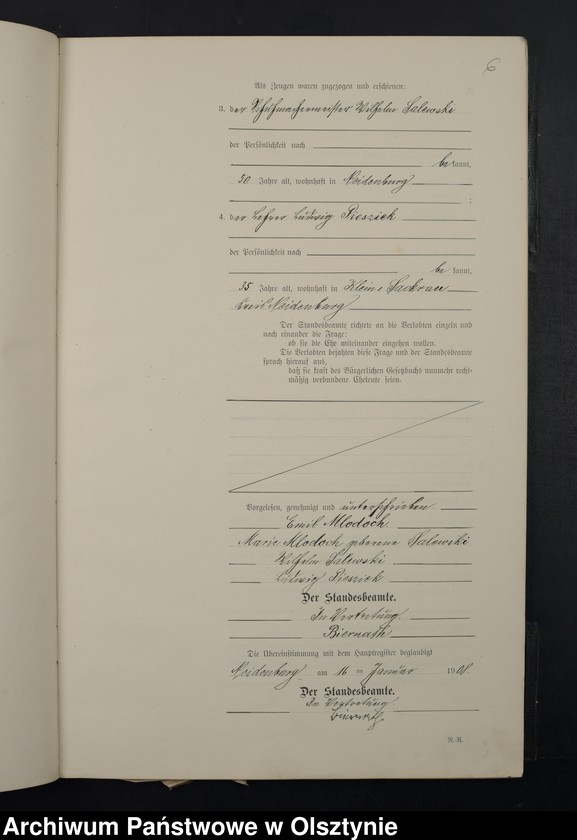 6
Als Zeugen waren zugezogen und erschienen:
3. der Schuhmachermeister Wilhelm Salewski
der Persönlichkeit nach
be kannt,
50 Jahre alt, wohnhaft in Neidenburg
;
4. der Lehrer Ludwig Pieszick
der Persönlichkeit nach
be kannt,
35 Jahre alt, wohnhaft in Klein
Kreis Neidenburg
Der Standesbeamte richtete an die Verlobten einzeln und
nach einander die Frage:
ob sie die Ehe miteinander eingehen wollen.
Die Verlobten bejahten diese Frage und der Standesbeamte
sprach hierauf aus,
daß sie kraft des Bürgerlichen Gesetzbuchs nunmehr recht-
mäßig verbundene Eheleute seien.
Vorgelesen, genehmigt und unterschrieben
Emil Mlodoch
Marie Mlodoch geborene Salewski
Wilhelm Salewski
Ludwig Pieszick
Der Standesbeamte.
In Vertretung
Biernath
Die Übereinstimmung mit dem Hauptregister beglaubigt
Neidenburg am 16 ten Januar 1908.
Der Standesbeamte.
In Vertretung
Biernath
N.-R.
Archiwum Państwowe w Olsztynie